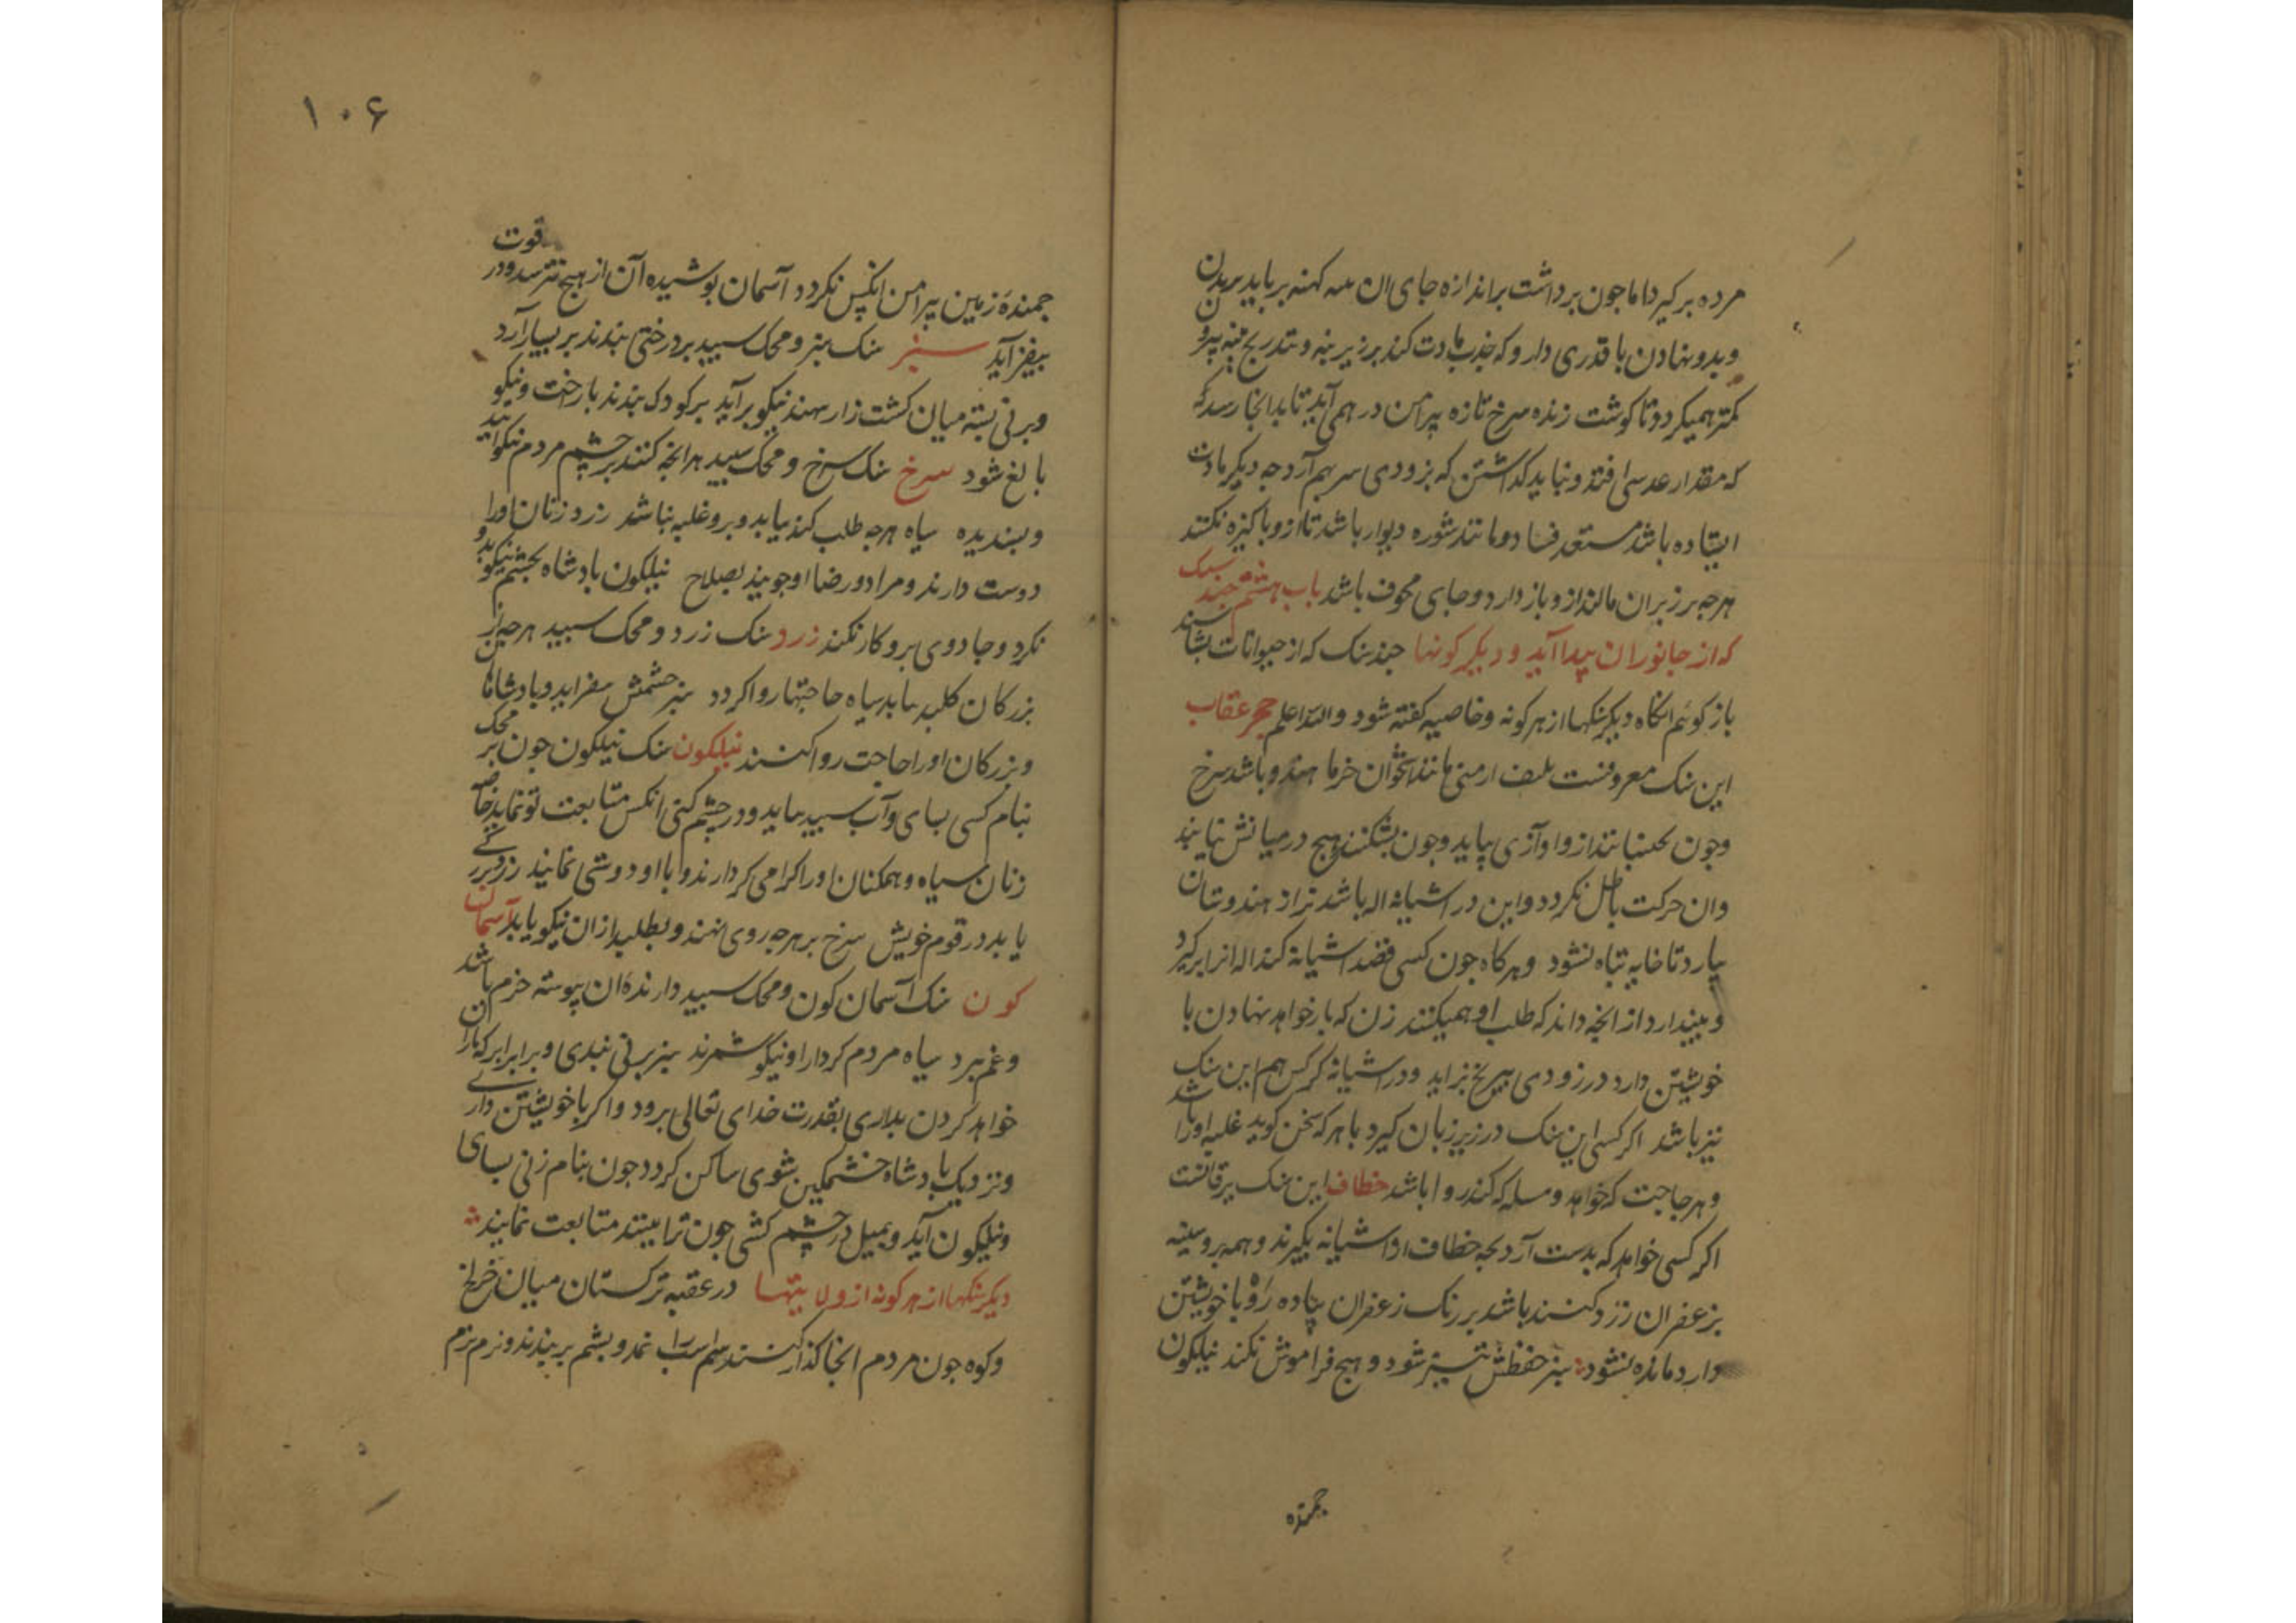 مرده برکیرد اما جون برداشت براندازه جای ان کهنه بر باید بریدن
وبدو نهادن با قدری دارو که جذب مادت کند بر زیر پنبه و بتدریج پنبه
کمتر همیکردد تا کوشت زنده سرخ تازه پیرامن درهمی آید تا بدانجا رسد که
که مقدار عدسی افتد و نباید کداشتن که بزودی سر بهم آرد جه دیکر مادت
ایستاده باشد مستعد فساد و مانند شوره دیوار باشد تا ازو پاکیزه نکند
هرجه بر زبر ان مالند ازو باز دارد و جای مجوف باشد باب هشتم جند سنک
که از جانوران پیدا آید و دیکر کونها جند سنک که از حیوانات بشناسند
باز کوئم انکاه دیکر سنکها از هر کونه و خاصیه کفته شود والله اعلم حجر عقاب
این سنک معروفست ارمنی مانند استخوان خرما هندو باشد سرخ
وجون بجنبانند ازو آوازی بیاید وجون بشکنند هیج در میانش نیابند
وان حرکت باطل نکردد و این در اشیانه اله باشد نر از هندوستان
بیارد تا خایه تباه نشود وهرکاه جون کسی قصد اشیانه کند اله انرا برکیرد
و بیندازد از انجه داند که طلب او همیکنند زن که بار خواهد نهادن با
خویشتن دارد در زودی بیرنج بزاید ودر اشیانه کرکس هم این سنک
نیز باشد اکر کسی این سنک در زیر زبان کیرد با هر که سخن کوید غلبه اورا باشد
وهر حاجت که خواهد ومسله که کند روا باشد خطاف این سنک یرقانست
اکر کسی خواهد که بدست آرد بجه خطاف از اشیانه بکیرند وهمه بر و سینه
بزعفران زرد کنند باشد بر رنک زعفران پیاده رو با خویشتن
دارد مانده نشود سبز حفظش تیز شود و هیج فراموش نکند نیلکون
جمنده
۱۰۶
جمنده زمین پیرامن انکس نکردد آسمان بوشیده آن از هیج نترسد ودر قوت
بیفزاید سبز سنک سبز و محک سبید بر درختی بندند بر بسیار آرد
وبر نی بسته میان کشت زار نهند نیکو برآید بر کودک بندند با رخت و نیکو
بالغ شود سرخ سنک سرخ و محک سبید هر انجه کنند بر جشم مردم نیکو آید
وبسندیده سیاه هرجه طلب کند بیابد وبرو غلبه نباشد زرد زنان اورا
دوست دارند و مراد و رضا او جویند بصلاح نیلکون بادشاه بجشم نیکو بدو
نکرد و جادوی برو کار نکند زرد سنک زرد و محک سبید هرجه از
بزرکان طلبد بیابد سیاه حاجتها روا کردد سبز جشمش بیفزاید و بادشاهان
وبزرکان اورا حاجت روا کنند نیلکون سنک نیلکون جون بر محک
بنام کسی بسای و آب سبید بیاید ودر جشم کنی انکس متابعت تو نماید خاصه
زنان سیاه و همکنان اورا کرامی دارند و با او دوستی نمایند زرد
یابد در قوم خویش سرخ بر هرجه روی نهند و بطلبد از ان نیکو یابد آسمان
کون سنک آسمان کون و محک سبید دارنده ان پیوسته خرم باشد
وغم نبرد سیاه مردم کردار او نیکو شمرند سبز بر نی بندی و برابر ابر که باران
خواهد کردن بداری بقدرت خدای تعالی برود و اکر با خویشتن داری
ونزدیک بادشاه خشمکین شوی ساکن کردد جون بنام زنی بسای
ونیلکون آید و بمیل در جشم کشی جون ترا بیند متابعت نماید
دیکر سنکها از هر کونه از ولایتها در عقبه ترکستان میان خرلخ
وکوه جون مردم انجا کذار کنند سم اسب نمد و بشم بر بندند و نرم نرم